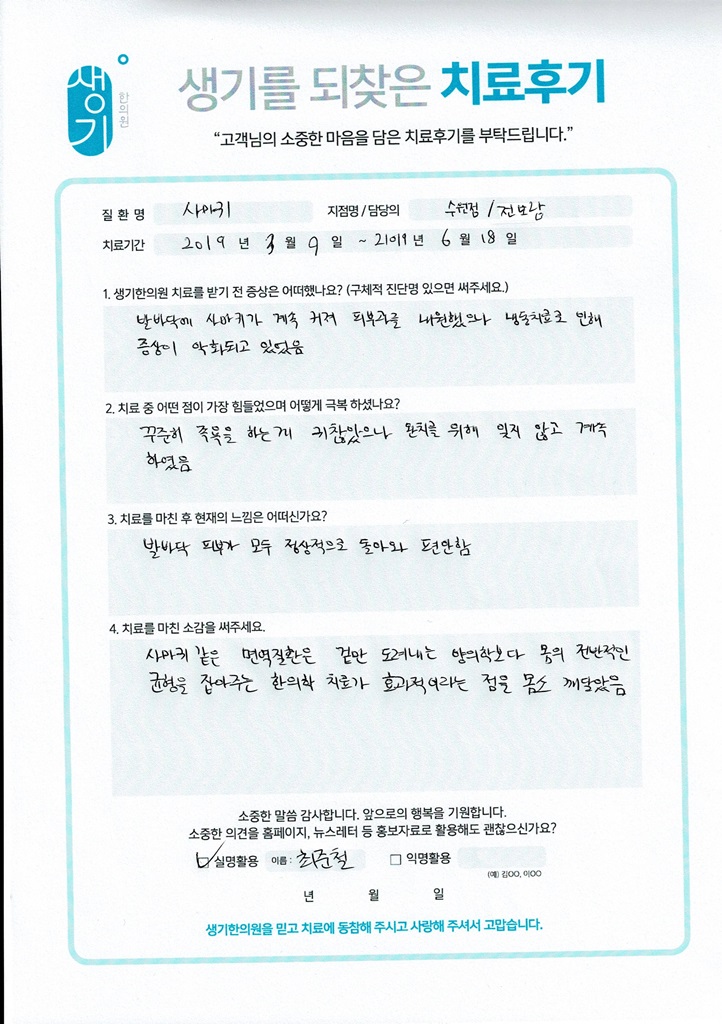 생기
한의원
생기를 되찾은 치료후기
“고객님의 소중한 마음을 담은 치료후기를 부탁드립니다.”
질환명 사마귀 지점명 / 담당의 수원점 / 전보람
치료기간 2019 년 3 월 9 일 ~ 2019 년 6 월 18 일
1. 생기한의원 치료를 받기 전 증상은 어떠했나요? (구체적 진단명 있으면 써주세요.)
발바닥에 사마귀가 계속 커져 피부과를 내원했으나 냉동치료로 인해
증상이 악화되고 있었음
2. 치료 중 어떤 점이 가장 힘들었으며 어떻게 극복 하셨나요?
꾸준히 족욕을 하는게 귀찮았으나 완치를 위해 잊지 않고 계속
하였음
3. 치료를 마친 후 현재의 느낌은 어떠신가요?
발바닥 피부가 모두 정상적으로 돌아와 편안함
4. 치료를 마친 소감을 써주세요.
사마귀 같은 면역질환은 겉만 도려내는 양의학보다 몸의 전반적인
균형을 잡아주는 한의학 치료가 효과적이라는 점을 몸소 깨달았음
소중한 말씀 감사합니다. 앞으로의 행복을 기원합니다.
소중한 의견을 홈페이지, 뉴스레터 등 홍보자료로 활용해도 괜찮으신가요?
실명활용 이름 : 최준철 익명활용
(예) 김OO, 이OO
년 월 일
생기한의원을 믿고 치료에 동참해 주시고 사랑해 주셔서 고맙습니다.